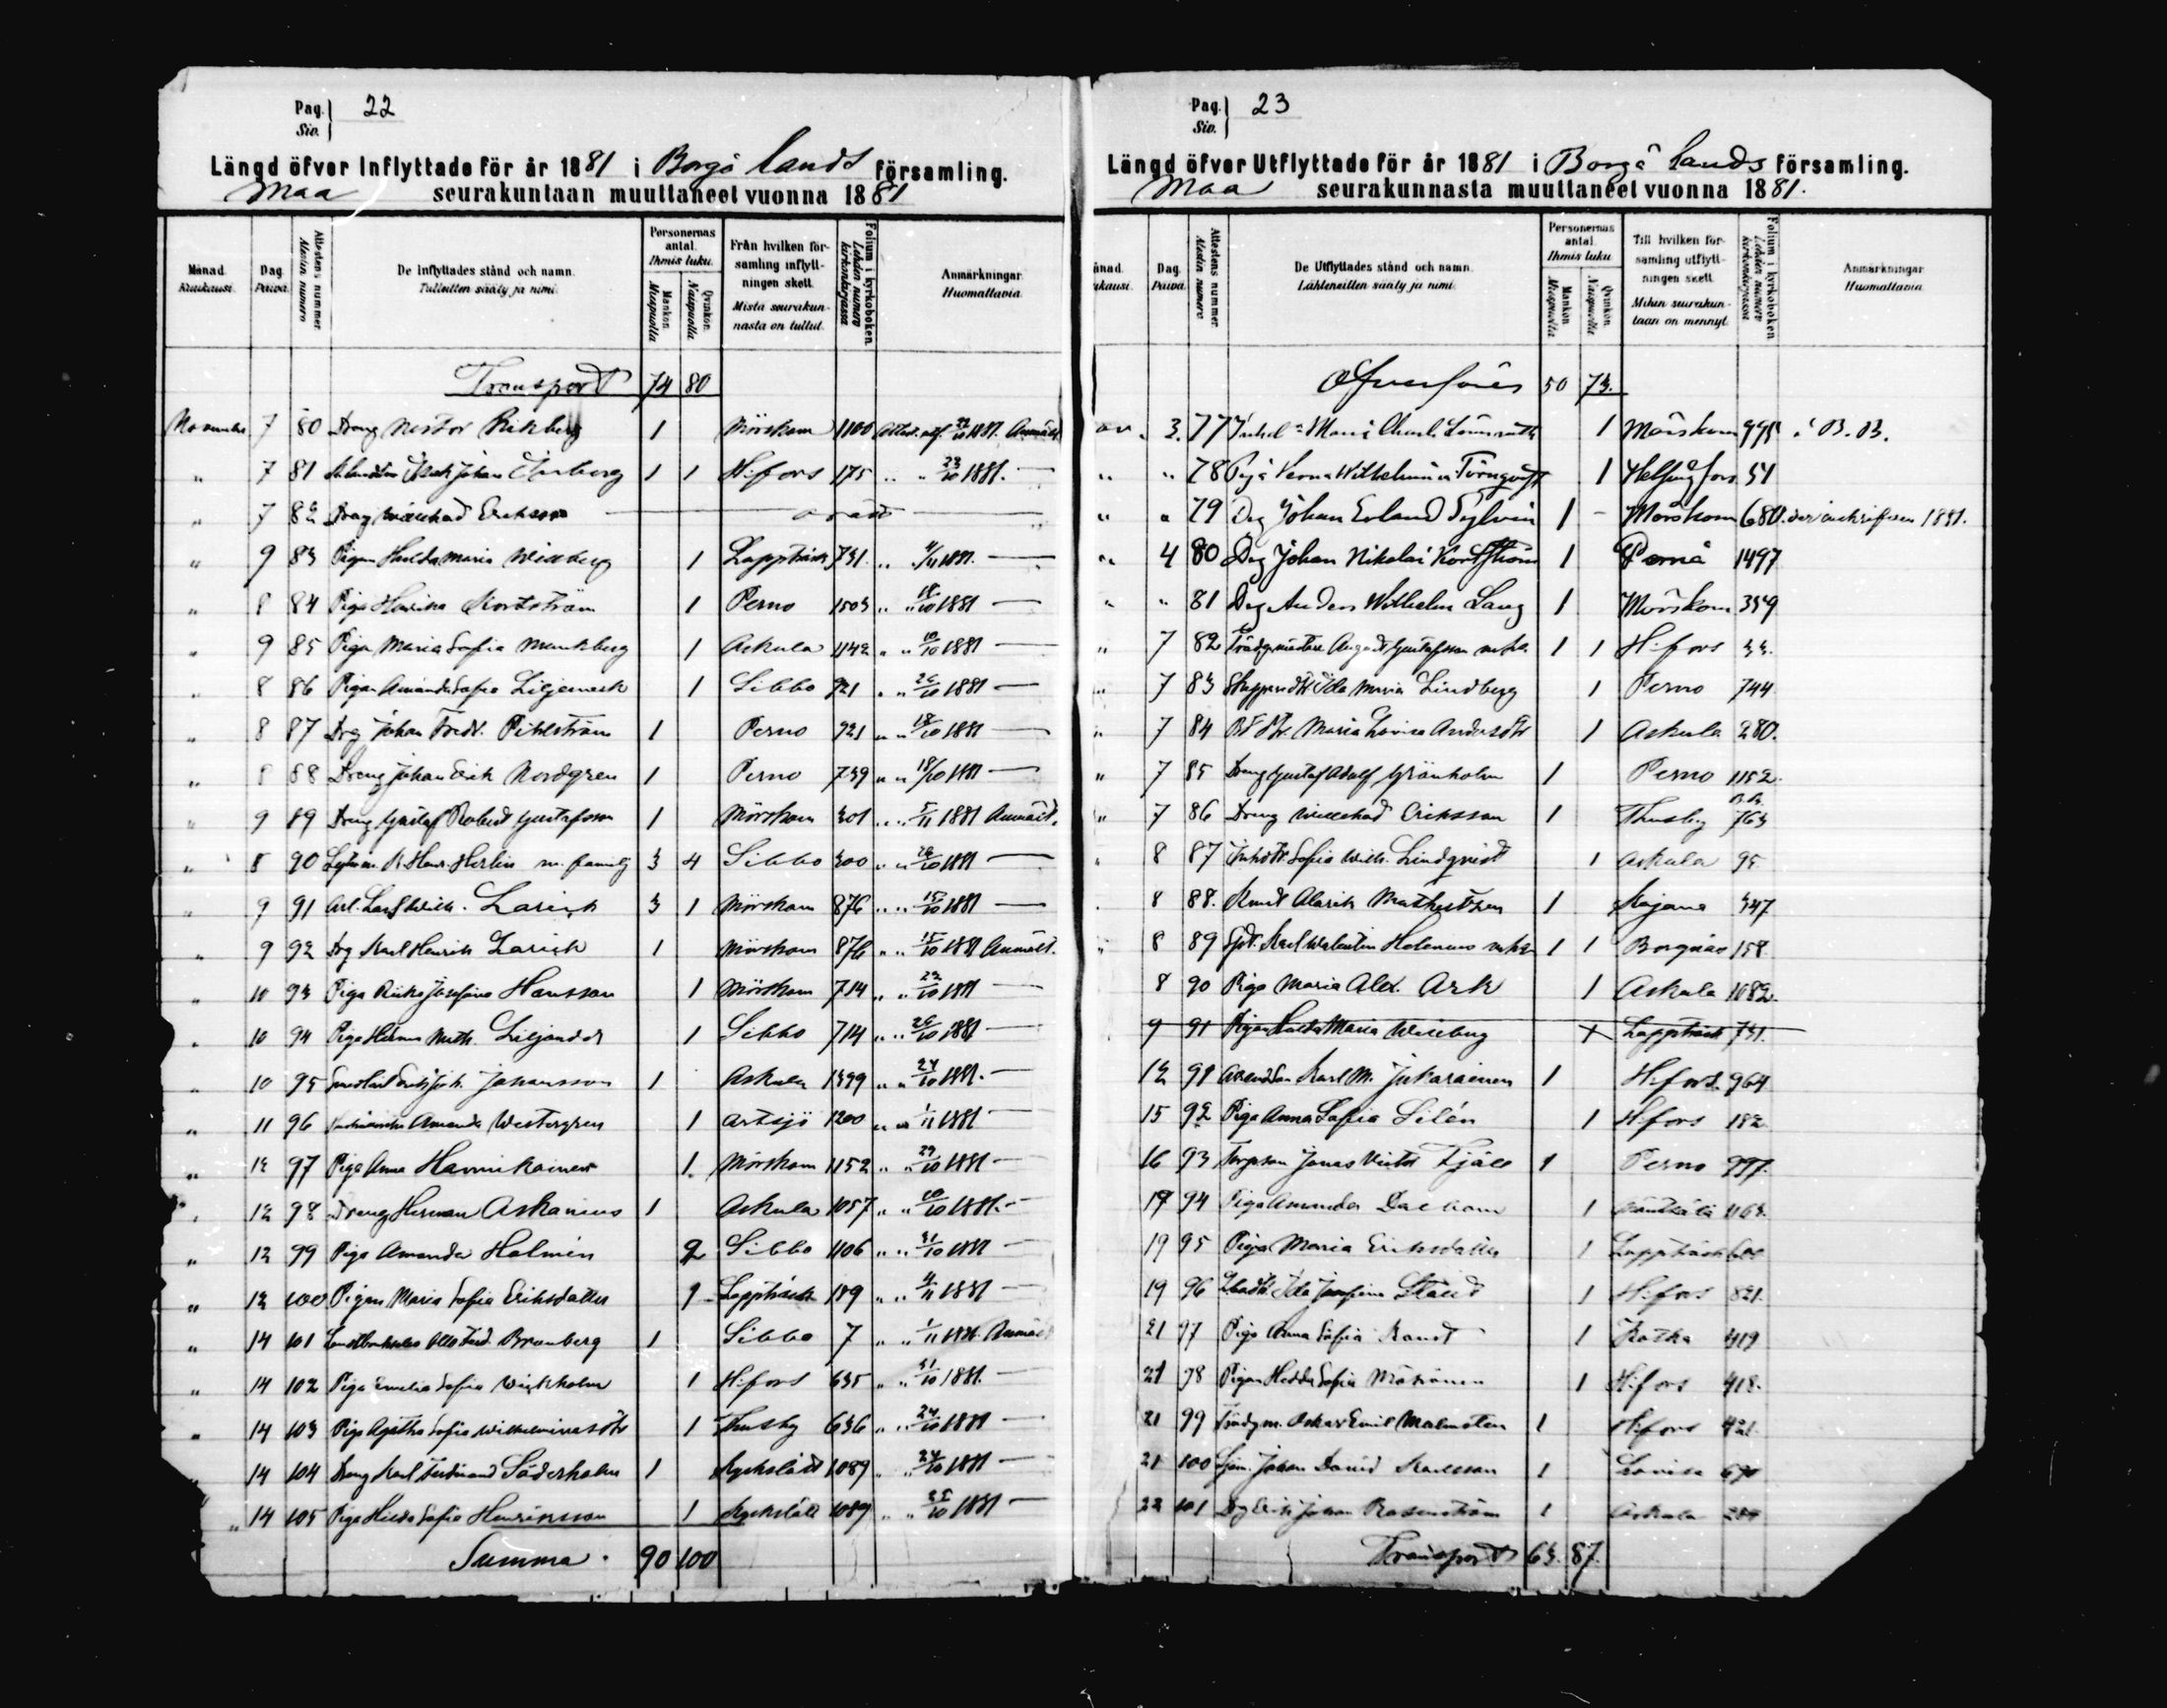 Pag. Siv. 22
Längd öfver Inflyttade för år 1881 i Borgå lands församling.
Maa seurakuntaan muuttaneet vuonna 1881
Månad. Kuukausi. Dag. Päivä. Attestens nummer. Alestin numero De Inflyttades stånd och namn. Tulleitten sääty ja nimi. Personernas antal. Ihmis luku. Mankön. Miespuolta Qvinkön. Naispuolta Från hvilken församling inflyttningen skett. Mistä seurakunnasta on tullut. Folium i kyrkoboken. Lehden numero kirkonkirjassa Anmärkningar. Huomattavia.
Transport 74 80
November 7 80 Dreng Nestor Rikberg 1 Mörskom 1100 Attest. utf. 22/10 1881. Anmält
" 7 81 Johan 1 1 H:fors 175 " " 23/10 1881. —
" 7 82 Dreng Willehad Eriksson
" 9 83 Pigan Hulda Maria Willberg 1 Lappträsk 731. " 4/11 1881. —
" 8 84 Piga Henrika Kortström 1 Perno 1503 " " 18/10 1881 —
" 9 85 Piga Maria Sofia Munkberg 1 Askula 1142 " " 10/10 1881 —
" 8 86 Pigan Amanda Sofia Liljemark 1 Sibbo 921 " " 26/10 1881 —
" 8 87 Drg Johan Fredr. Pihlström 1 Perno 721 " " 18/10 1881 —
" 8 88 Dreng Johan Erik Nordgren 1 Perno 739 " " 18/10 1881 —
" 9 89 Dreng Gustaf Robert Gustafsson 1 Mörskom 301 " " 5/11 1881 Anmält.
" 8 90 Henr. Herlin m. familj 3 4 Sibbo 300 " " 28/10 1881 —
" 9 91 Larick 3 1 Mörskom 876 " " 15/10 1881 —
" 9 92 Drg Karl Henrik Larick 1 Mörskom 876 " " 15/10 1881 Anmält.
" 10 93 Piga Josefina Hansson 1 Mörskom 714 " " 22/10 1881 —
" 10 94 Piga Liljander 1 Sibbo 714 " " 26/10 1881 —
" 10 95 Johansson 1 Askula 1399 " " 24/10 1881. —
" 11 96 Amanda Westergren 1 Artsjö 1200 " " 1/11 1881 —
" 12 97 Piga Anna Hannikainen 1. Mörskom 1152 " " 29/10 1881 —
" 12 98 Dreng Herman Askanius 1 Askula 1057 " " 10/10 1881. —
" 12 99 Piga Amanda Holmén 2 Sibbo 1106 " " 31/10 1881 —
" 12 100 Pigan Maria Sofia Eriksdatter 1 Lappträsk 189 " " 4/11 1881 —
" 14 101 Otto Ferd. Bromberg 1 Sibbo 7 " " 1/11 1881. Anmält
" 14 102 Piga Emelia Sofia Wickholm 1 H:fors 635 " " 31/10 1881. —
" 14 103 Piga Agatha Sofia Wilhelminasdtr 1 Thusby 636 " " 24/10 1881 —
" 14 104 Dreng Karl Ferdinand Söderholm 1 Kyrkslätt 1089 " " 24/10 1881 —
" 14 105 Piga Hilda Sofia Henriksson 1 Kyrkslätt 1089 " " 25/10 1881 —
Summa. 90 100
Pag. Siv. 23
Längd öfver Utflyttade för år 1881 i Borgå lands församling.
Maa seurakunnasta muuttaneet vuonna 1881.
ånad. ukausi. Dag. Päivä. Attestens nummer. Alestin numero De Utflyttades stånd och namn. Lähteneitten sääty ja nimi. Personernas antal. Ihmis luku. Mankön. Miespuolta Qvinkön. Naispuolta Till hvilken församling utflyttningen skett. Mihin seurakuntaan on mennyt. Folium i kyrkoboken. Lehden numero kirkonkirjassa Anmärkningar. Huomattavia.
Öfverföres 50 73.
ov. 3. 77 Maria 1 Mörskom 995 B. B.
" " 78 Piga Verna Wilhelmina Törnqvist 1 Helsingfors 51
" " 79 Drg Johan Erland Sylvin 1 – Mörskom 680. 1881.
" 4 80 Drg Johan Nikolai Kortström 1 Pernå 1497
" " 81 Drg Anders Wilhelm Lang 1 Mörskom 359
" 7 82 August Gustafsson 1 1 H:fors 33.
" 7 83 Ida Maria Lindberg 1 Perno 744
" 7 84 Maria Lovisa Andersdtr 1 Askula 280.
" 7 85 Dreng Gustaf Adolf Grönholm 1 Perno 1152
" 7 86 Dreng Willehad Eriksson 1 Thusby 763
" 8 87 Sofia Wilh. Lindqvist 1 Askula 95
8 88. Knut Alarik 1 Kajana 347
" 8 89 Karl Walentin Holenius 1 1 Borgnäs 158
8 90 Piga Maria Alex. Ark 1 Askula 1082.
9 91 Pigan Hulda Maria Willberg 1 Lappträsk 731.
12 91 Karl M. Jukarainen 1 H:fors. 964
15 92 Piga Anna Sofia Silén 1 H:fors 182
16 93 Torpson Jonas Victor Fjäll 1 Perno 997.
17 94 Piga Amanda 1 1163.
19 95 Piga Maria Eriksdatter 1 Lappträsk
19 96 Ida Josefina Ståhl 1 H:fors 821.
21 97 Piga Anna Sofia 1 Kotka 419
21 98 Pigan Hedda Sofia 1 H:fors 418.
21 99 Oskar Emil Malmsten 1 H:fors 421.
21 100 Johan David Karlsson 1 Lovisa 670
22 101 Drg Erik Johan Rosenström 1 Askula
Transport 63. 87.